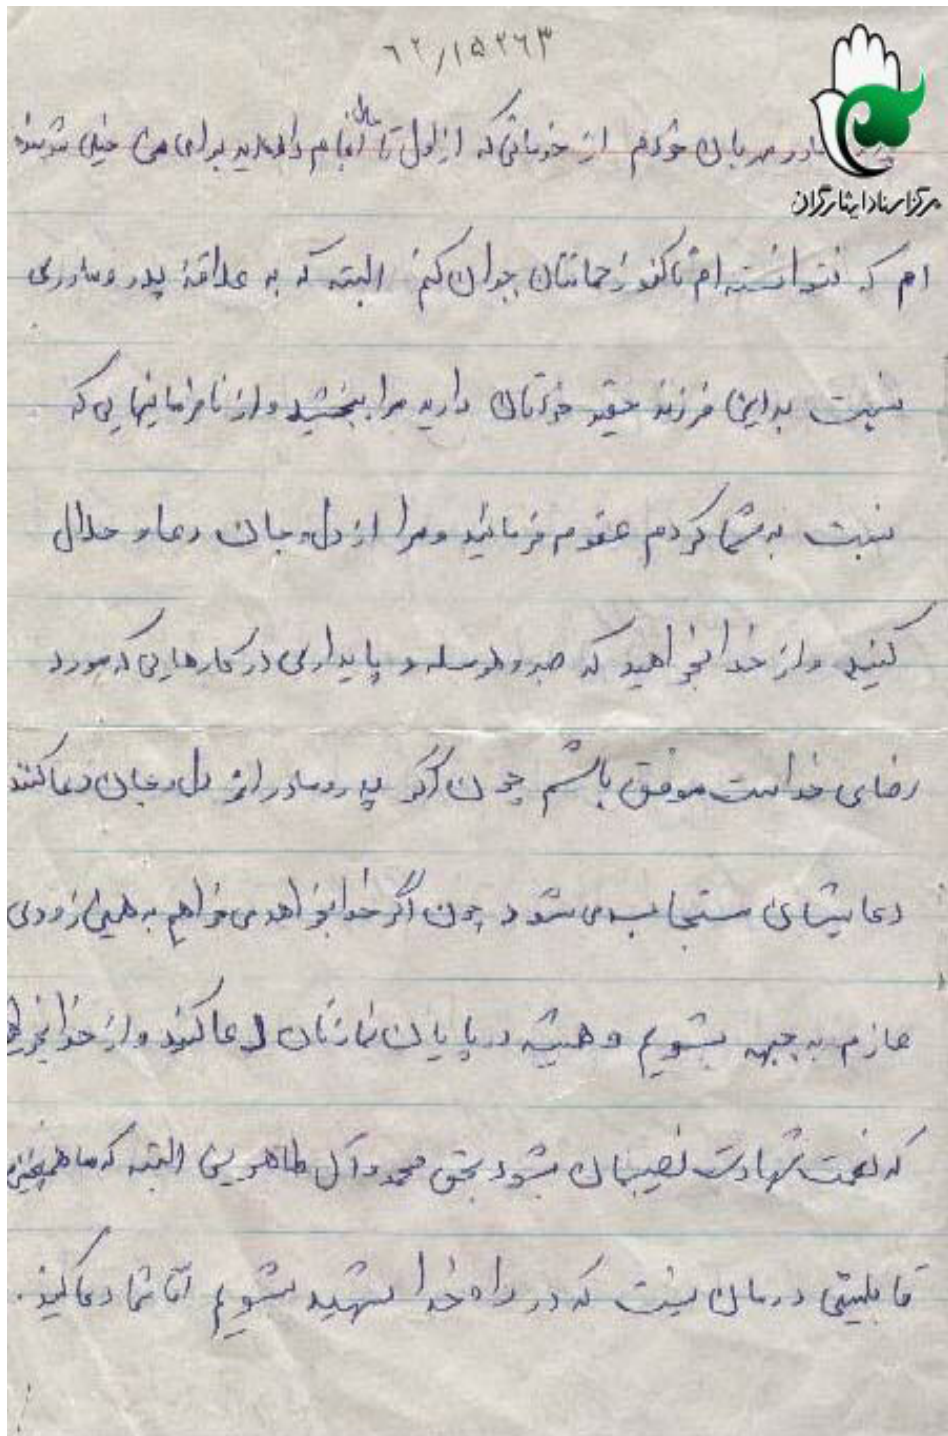 ۶۲/۱۵۲۶۳
مادر مهربان خودم از خدماتی که از اول تا حال انجام داده‌اید برای من خیلی شرمنده
مرکز اسناد ایثارگران
ام که نتوانسته‌ام تاکنون زحماتتان جبران کنم البته که به علاقهٔ پدر و مادری
نسبت به این فرزند حقیر خودتان دارید مرا ببخشید و از نافرمانیهایی که
نسبت به شما کردم عفوم فرمائید و مرا از دل و جان دعا و حلال
کنید و از خدا بخواهید که صبر و حوسله و پایداری در کارهایی که مورد
رضای خداست موفق باشم چون اگر پدر و مادر از دل و جان دعا کنند
دعایشان مستجاب می‌شود چون اگر خدا بخواهد می‌خواهم به همین زودی
عازم به جبهه بشویم و همیشه در پایان نمازتان دعا کنید و از خدا
که نعمت شهادت نصیبمان بشود بحق محمد و آل طاهرین البته که ما
قابلیتی درمان نیست که در راه خدا شهید بشویم امّا شما دعا کنید.